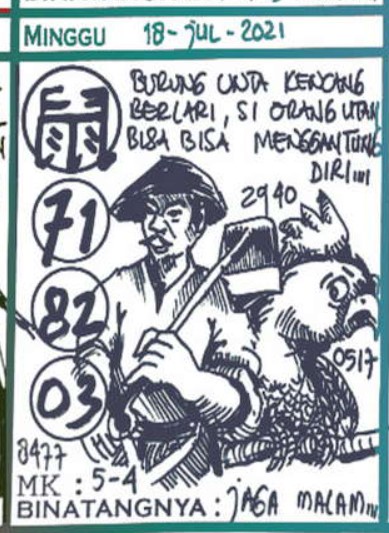 MINGGU 18-JUL-2021
BURUNG UNTA KENCANG
BERLARI, SI ORANG UTAN
BISA BISA MENGGANTUNG
DIRI...
71
82
03
2940
0517
8477
MK : 5-4
BINATANGNYA : JAGA MALAM...